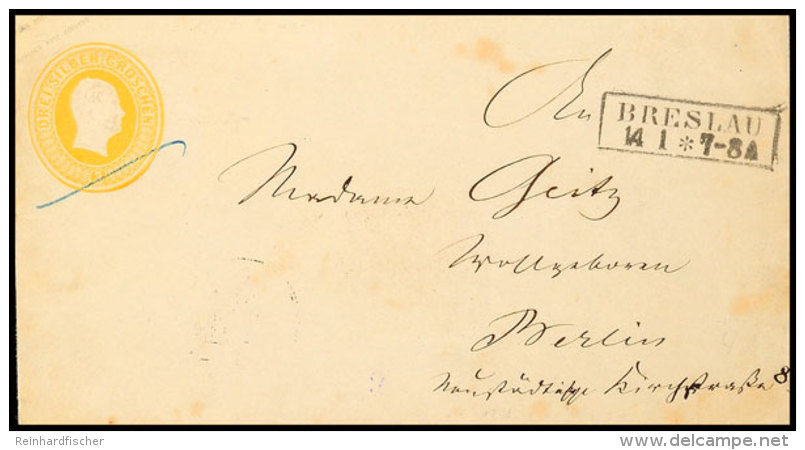 DREI SILBER GROSCHEN
An
BRESLAU
14 1 * 7-8A
Madame Geitz
Wohlgeboren
Berlin
Neustädtische Kirchstraße 8.
Reinhardfischer
delcampe.net